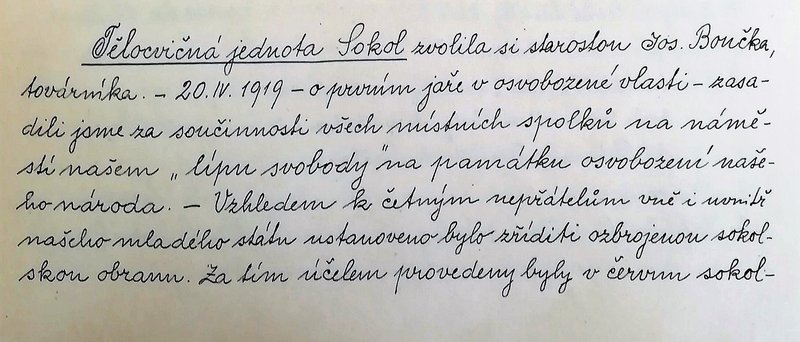 Tělocvičná jednota Sokol zvolila si starostou Jos. Boučka,
továrníka. – 20. IV. 1919 – o prvním jaře v osvobozené vlasti – zasa-
dili jsme za součinnosti všech místních spolků na námě-
stí našem „lípu svobody" na památku osvobození naše-
ho národa. – Vzhledem k četným nepřátelům vně i uvnitř
našeho mladého státu ustanoveno bylo zříditi ozbrojenou sokol-
skou obranu. Za tím účelem provedeny byly v červnu sokol-